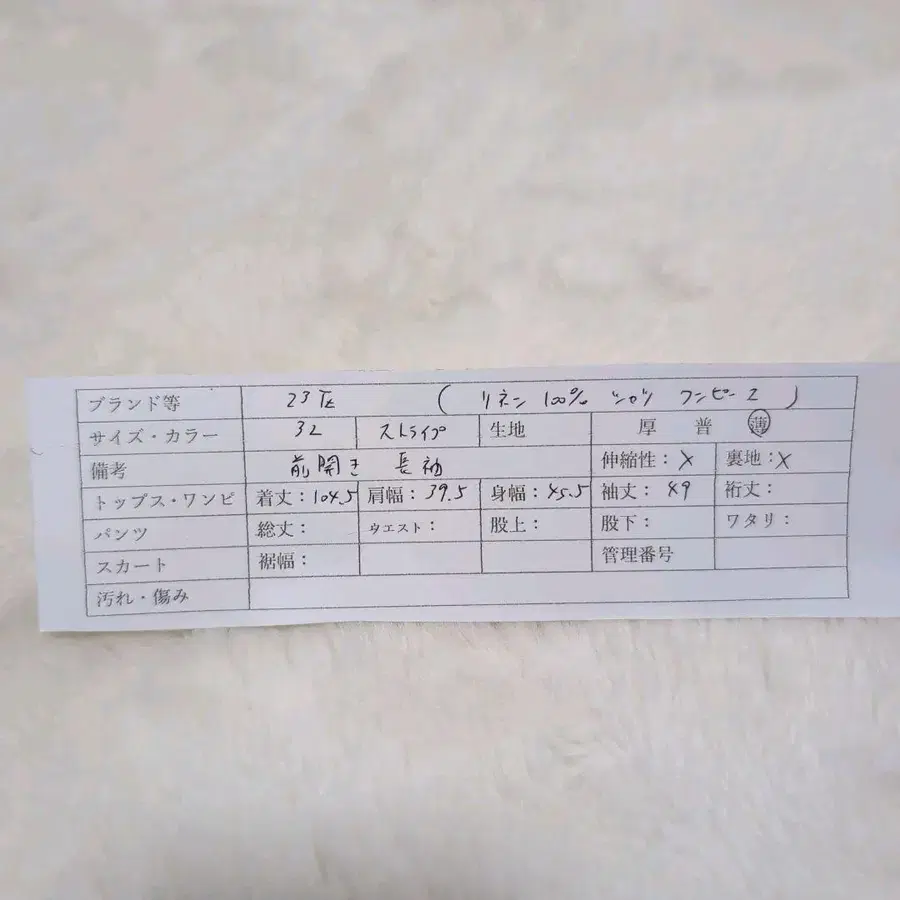 ブランド等 23区 ( リネン 100% シャツ ワンピース )
サイズ・カラー 32 ストライプ 生地 厚 普 薄
備考 前開き 長袖 伸縮性:× 裏地:×
トップス・ワンピ 着丈:104.5 肩幅:39.5 身幅:45.5 袖丈:49 裄丈:
パンツ 総丈: ウエスト: 股上: 股下: ワタリ:
スカート 裾幅: 管理番号
汚れ・傷み